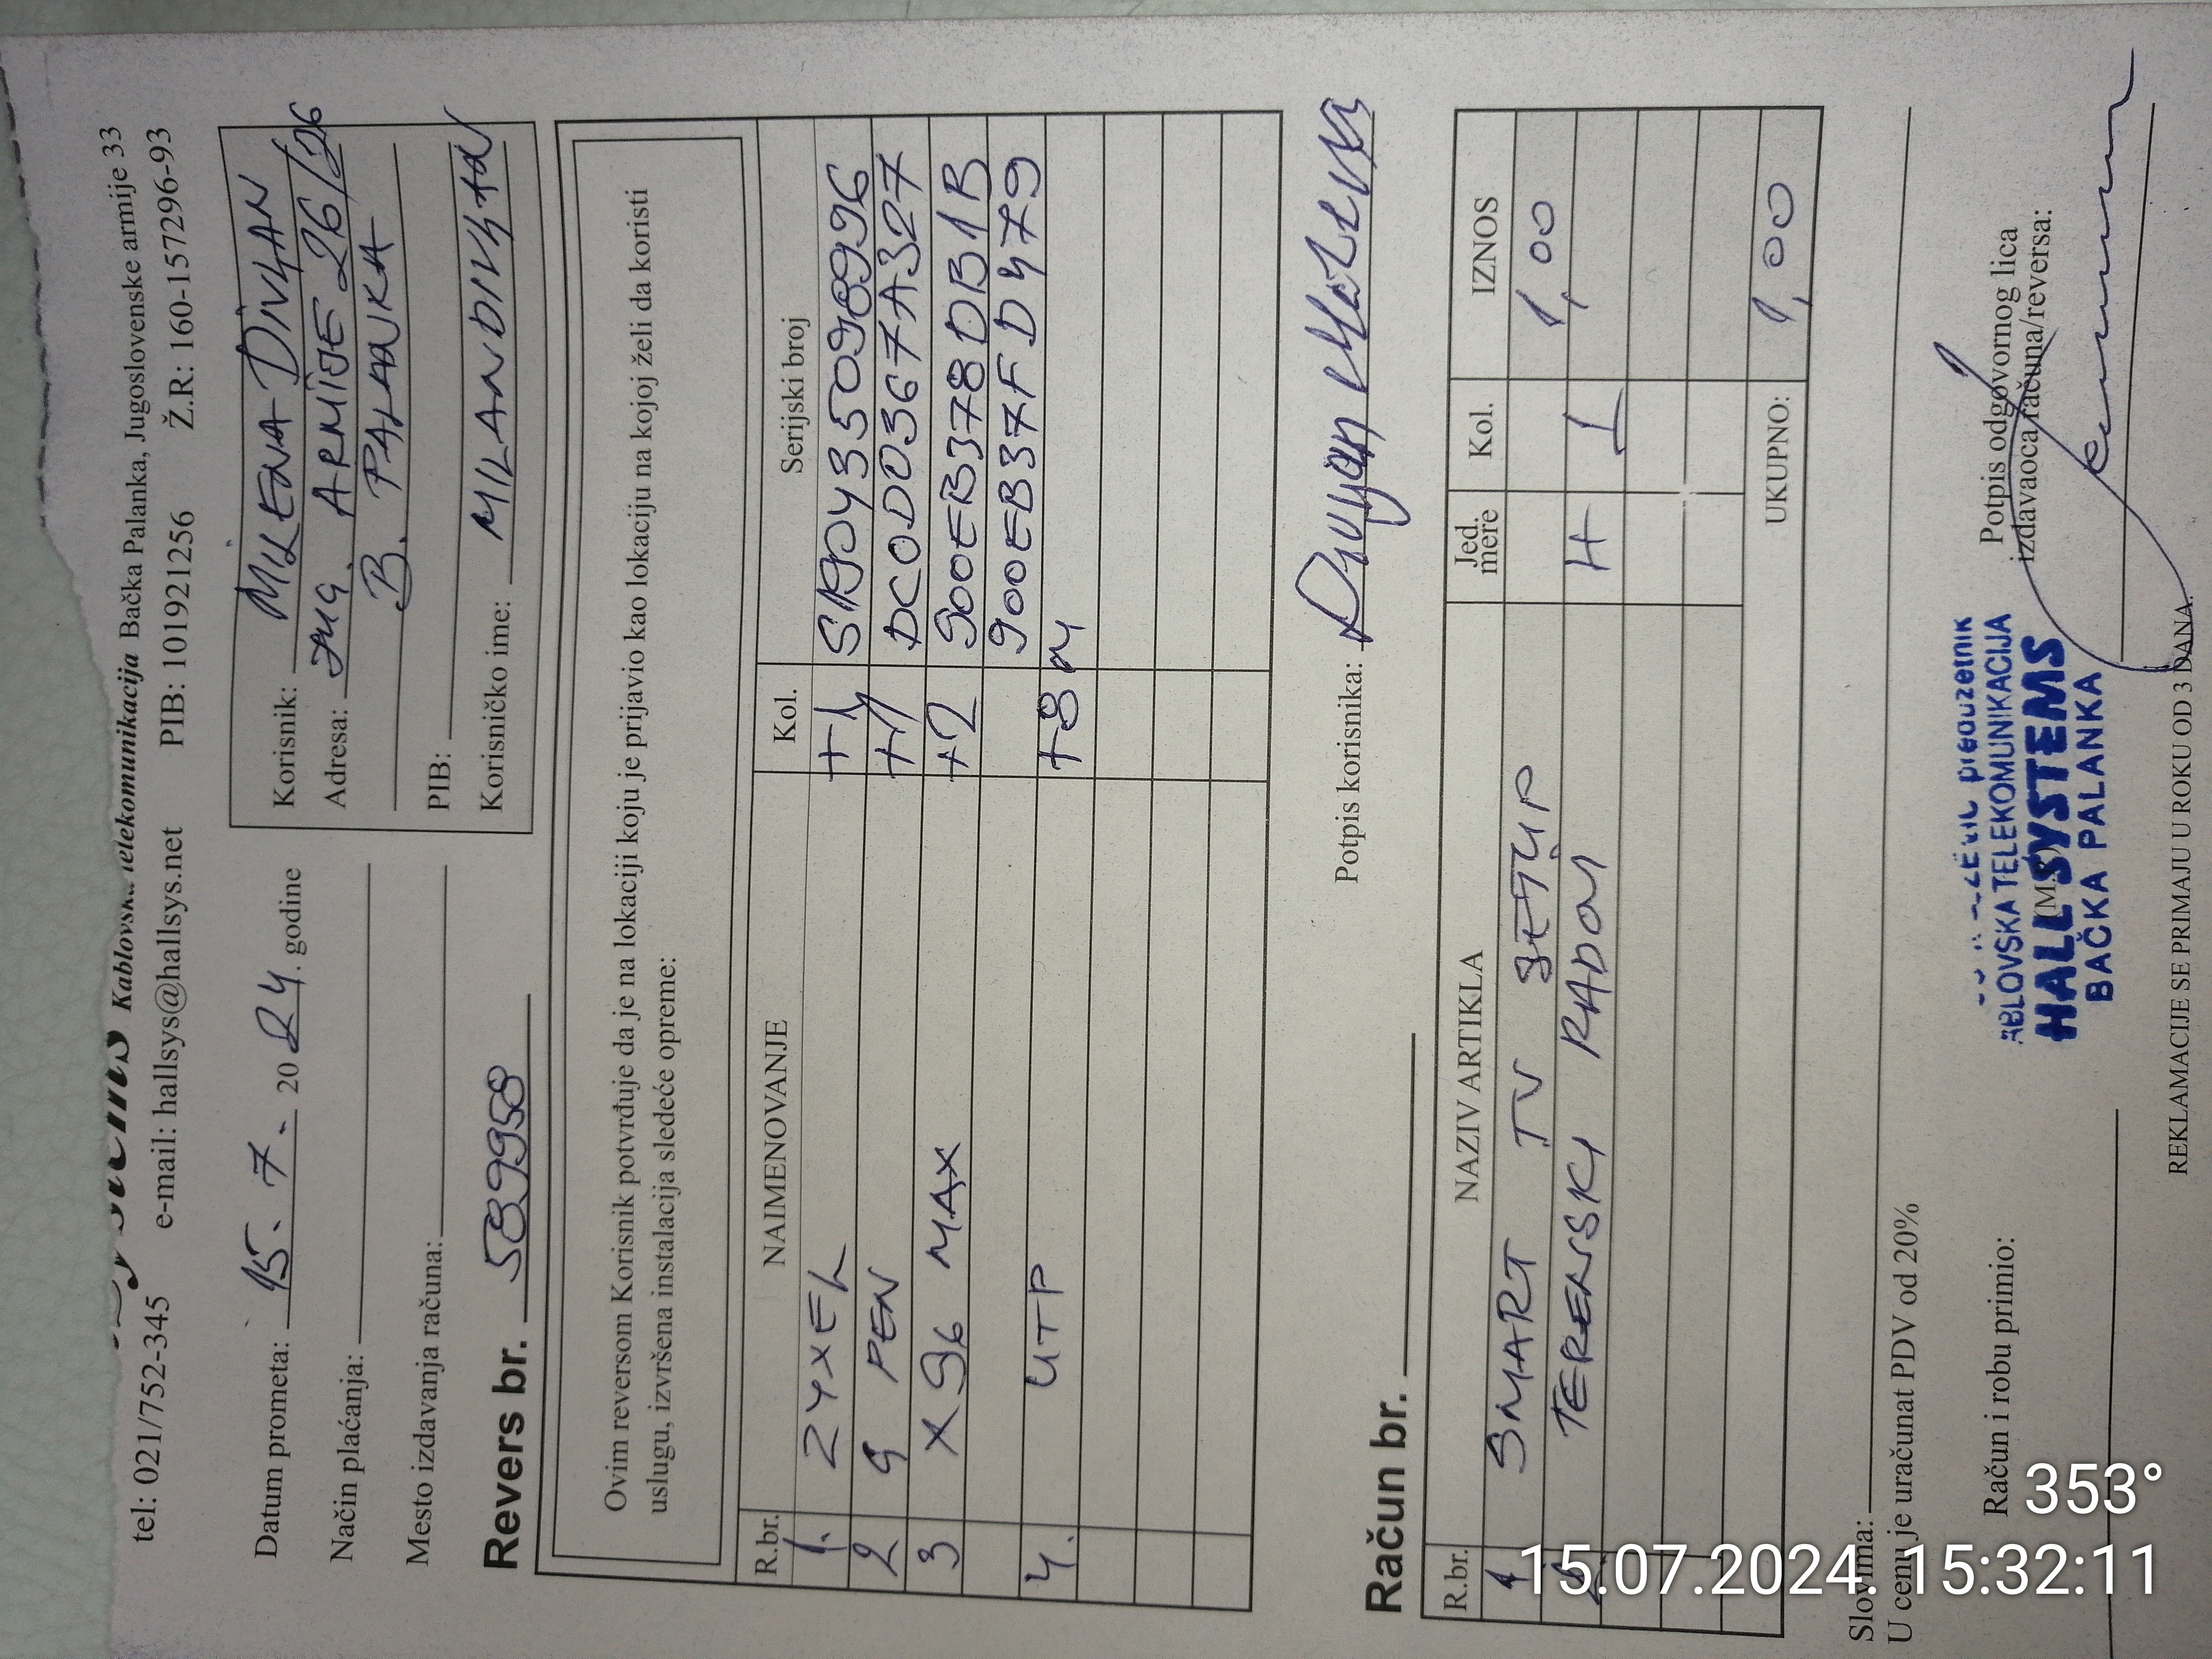 Kablovska telekomunikacija Bačka Palanka, Jugoslovenske armije 33
tel: 021/752-345 e-mail: hallsys@hallsys.net PIB: 101921256 Ž.R: 160-157296-93
Datum prometa: 15. 7. 2024. godine
Način plaćanja:
Mesto izdavanja računa:
Revers br. 589958
Korisnik: MILENA DIVLJAN
Adresa: JUG. ARMIJE 26/26
B. PALANKA
PIB:
Korisničko ime: MILANDIVLJAN
Ovim reversom Korisnik potvrđuje da je na lokaciji koju je prijavio kao lokaciju na kojoj želi da koristi
uslugu, izvršena instalacija sledeće opreme:
R.br. NAIMENOVANJE Kol. Serijski broj
1. ZYXEL +1
2 PEN +1 DC0D0367A327
3 X96 MAX +2 900EB378DB1B
900EB37FD479
4. UTP +8m
Potpis korisnika:
Račun br.
R.br. NAZIV ARTIKLA Jed. mere Kol. IZNOS
1 SMART TV SETUP 1,00
2 TERENSKI RADOVI H 1
UKUPNO: 1,00
Slovima:
U cenu je uračunat PDV od 20%
Račun i robu primio:
(M.P.)
Potpis odgovornog lica
izdavaoca računa/reversa:
KABLOVSKA TELEKOMUNIKACIJA
HALL SYSTEMS
BAČKA PALANKA
REKLAMACIJE SE PRIMAJU U ROKU OD 3 DANA.
353°
15.07.2024. 15:32:11